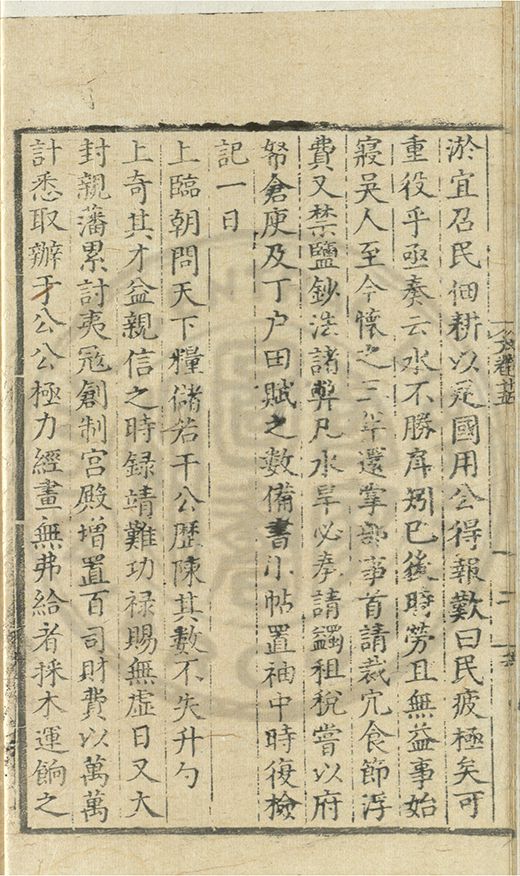 淤宜召民佃耕以足國用公得報歎曰民疲極矣可
重役乎亟奏云水不勝庤矧已後時勞且無益事始
寢吳人至今懷之三年還掌部事首請裁冗食節浮
費又禁鹽鈔法諸弊凡水旱必奏請蠲租稅嘗以府
帑倉庾及丁户田賦之數備書小帖置袖中時復檢
記一日
上臨朝問天下糧儲若干公歷陳其數不失升勺
上奇其才益親信之時録靖難功祿賜無虛日又大
封親藩累討夷冦創制宮殿增置百司財費以萬萬
計悉取辦于公公極力經畫無弗給者採木運餉之